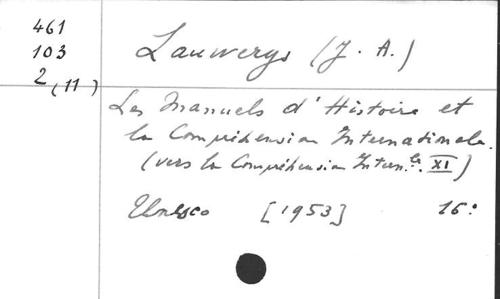 461
103
2 (11)
Lauwerys (J. A.)
Les Manuels d'Histoire et
la Compréhension Internationale.
(vers la Compréhension Intern.le XI)
Unesco [1953] 16º